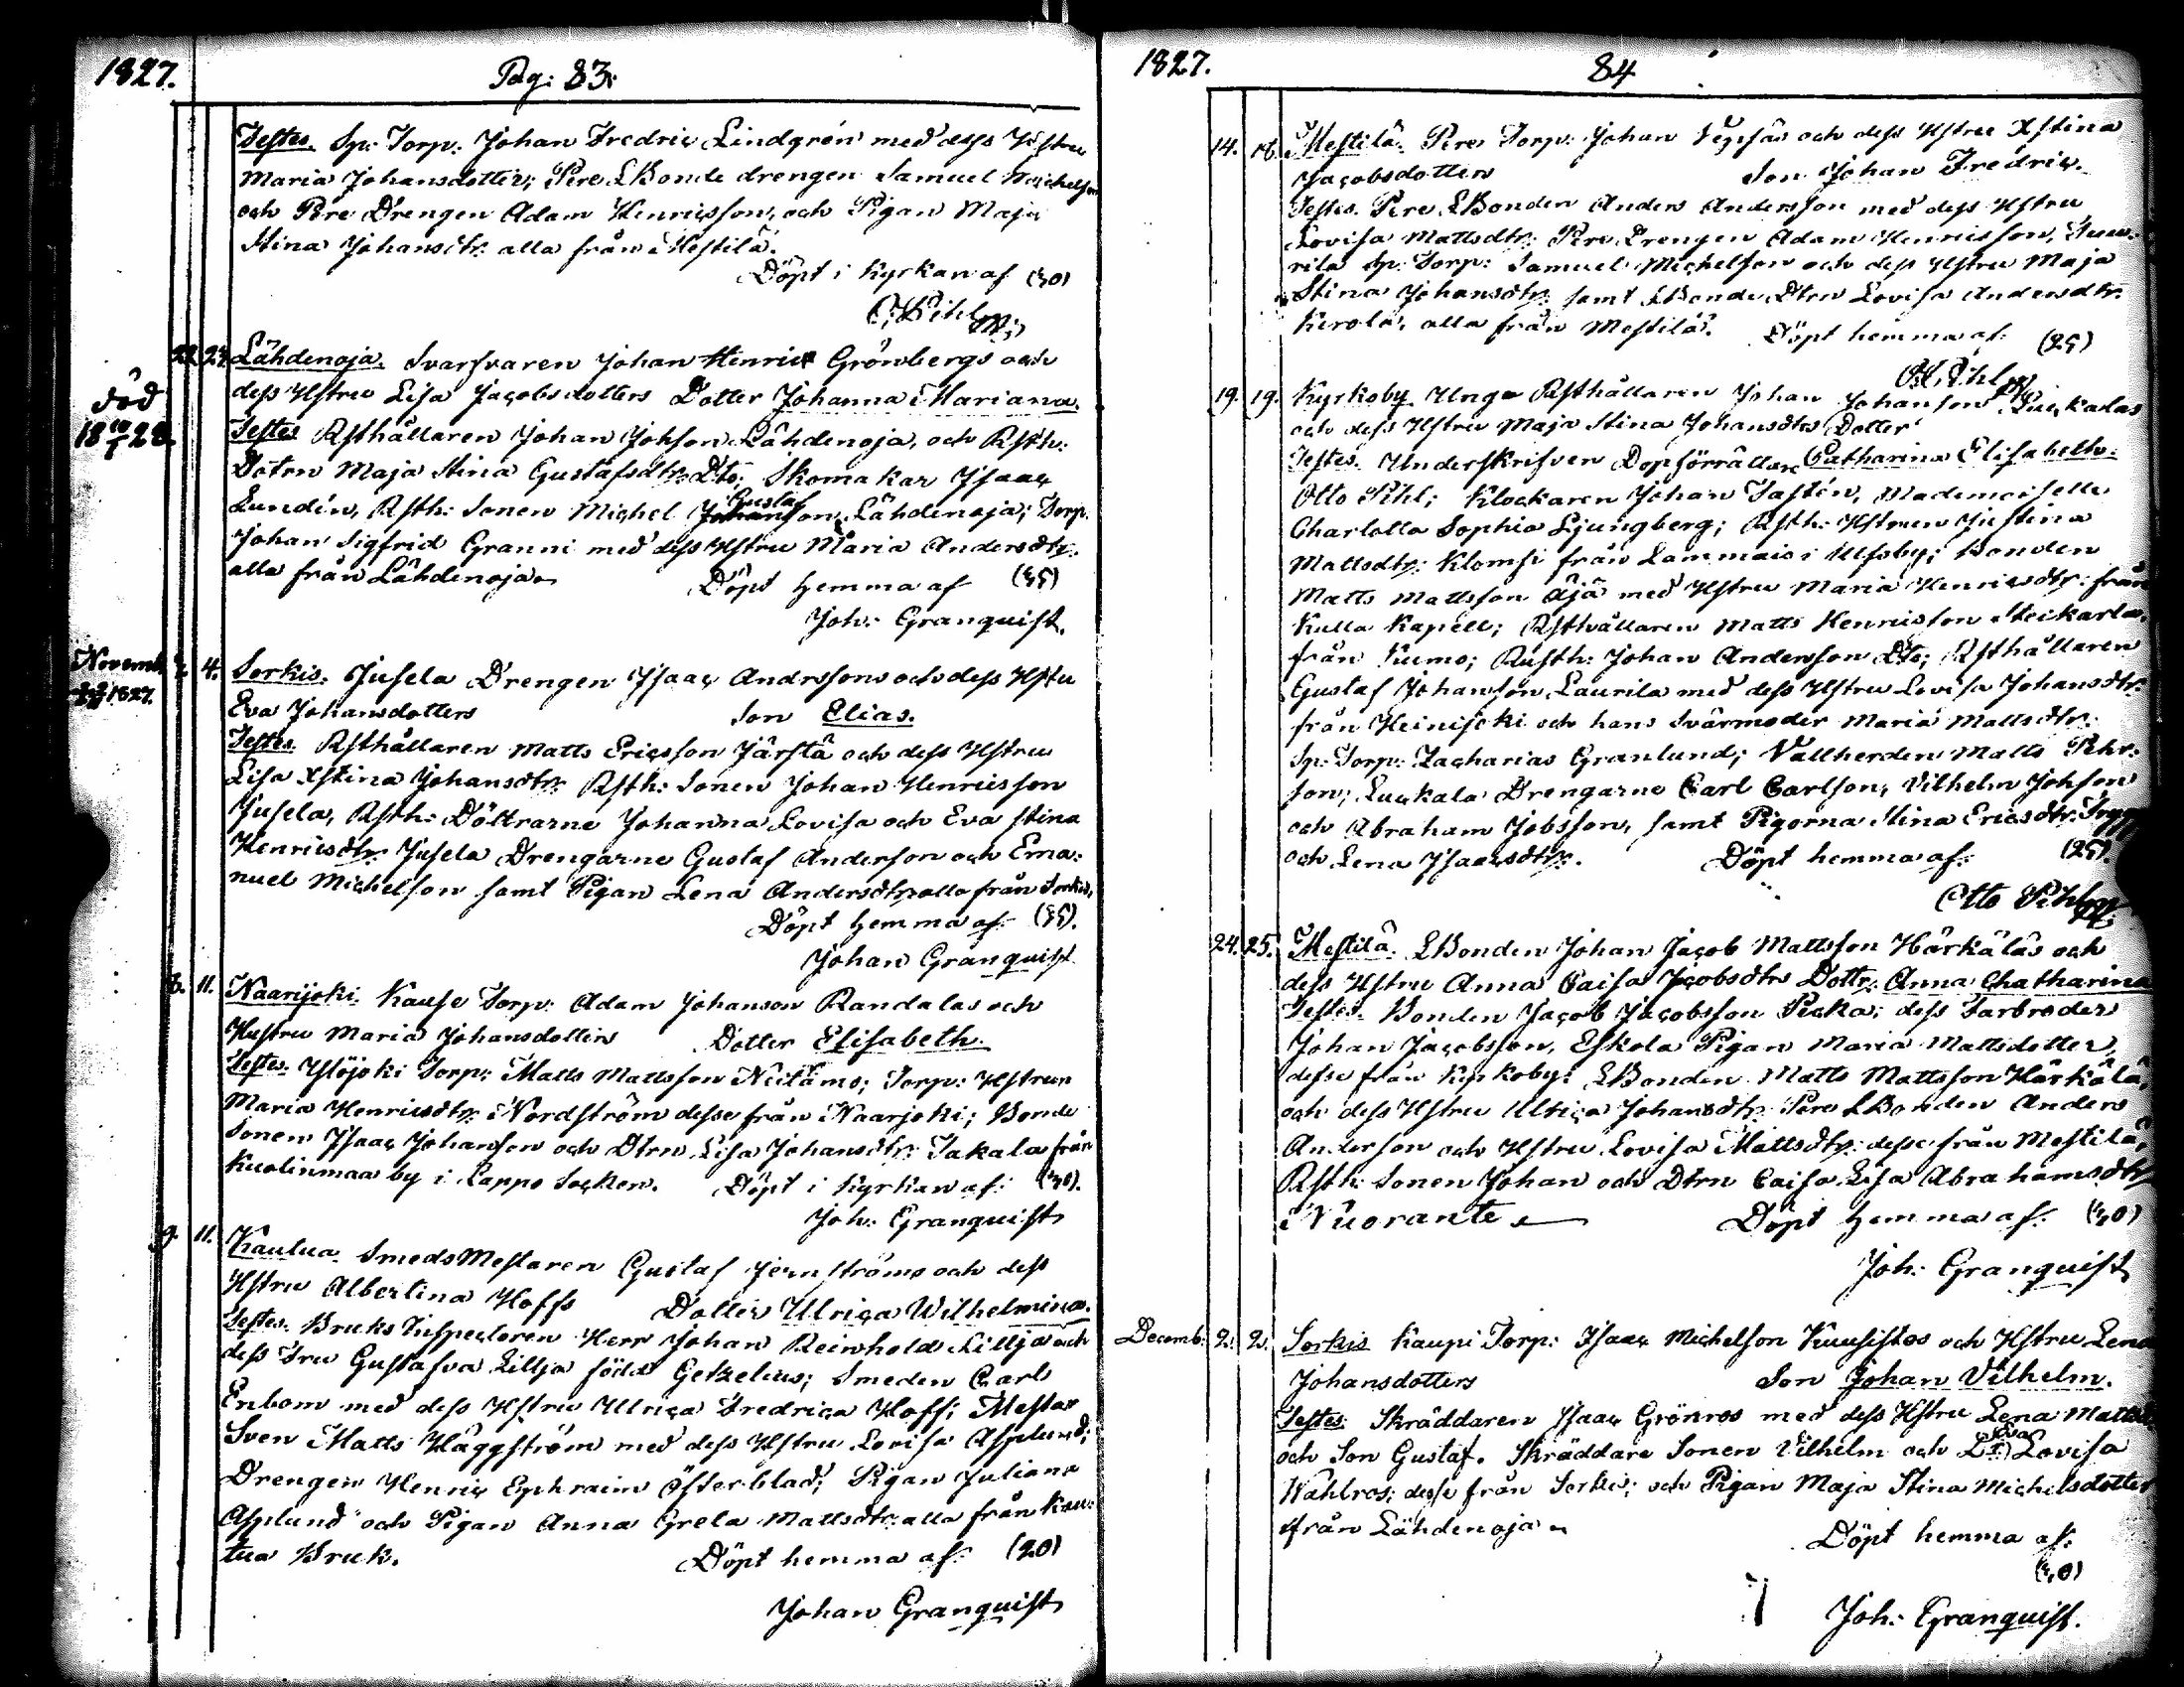 1827.
Pag: 83:
Testes. Sp: Torp: Johan Fredric Lindgrén med dess Hstru
Maria Johansdotter; Pere LBonde drengen Samuel Michelson
och Pere Drengen Adam Henricsson, och Pigan Maja
Stina Johansdtr: alla från Mestilä.
Döpt i Kyrkan af (30)
O: Pihl
22. 24. Lähdenoja. Svarfvaren Johan Henric Grönbergs och
dess Hstru Lisa Jacobsdotters Dotter Johanna Mariana.
död
18 10/1 28.
Testes Rsthållaren Johan Johsson Lähdenoja, och Rsth:
Dotren Maja Stina Gustafsdtr: Dto; Skomakar Isaac
Lundén, Rsth: Sonen Michel Gustafson Lähdenoja; Torp:
Johan Sigfrid Granni med dess Hstru Maria Andersdtr.
alla från Lähdenoja
Döpt hemma af (35)
Joh: Granquist.
Novemb:
1827.
4. Sorkis. Jusela Drengen Isaac Anderssons och dess Hstru
Eva Johansdotters Son Elias.
Testes. Rsthållaren Matts Ericsson Järstä och dess Hstru
Lisa Xstina Johansdtr: Rsth: Sonen Johan Henricsson
Jusela, Rsth: Döttrarne Johanna Lovisa och Eva Stina
Henricsdtr: Jusela Drengarne Gustaf Anderson och Ema:
nuel Michelson samt Pigan Lena Andersdtr: alla från Sorkis,
Döpt hemma af: (35).
Johan Granquist
8. 11. Naarijoki. Kause Torp: Adam Johanson Randalas och
Hustru Maria Johansdotters Dotter Elisabeth.
Testes. Ylöjoki Torp: Matts Mattsson Neitämo; Torp: Hstrun
Maria Henricsdtr: Nordström desse från Naarjoki; Bonde
Sonen Isaac Johanson och Dtrn Lisa Johansdtr: Takala från
Kuolinmaa by i Lappo Socken. Döpt i Kyrkan af: (30).
Joh: Granquist
9. 11. Kautua. SmedsMestaren Gustaf Jernströms och dess
Hstru Albertina Hoffs Dotter Ulrica Wilhelmina.
Testes. Bruks Inspectoren Herr Johan Reinhold Lillja och
dess Fru Gustafva Lillja född Getzelius; Smeden Carl
Enbom med dess Hstru Ulrica Fredrica Hoff; Mestar
Sven Matts Häggström med dess Hstru Lovisa Asplund;
Drengen Henric Ephraim Österblad; Pigan Juliana
Asplund och Pigan Anna Greta Mattsdtr: alla från Kau:
tua Bruk. Döpt hemma af: (20)
Johan Granquist
1827.
84
14. 18. Mestilä. Pere Torp: Johan Sepsäs och dess Hstru Xstina
Jacobsdotters Son Johan Fredric.
Testes. Pere LBonden Anders Andersson med dess Hstru
Lovisa Mattsdtr: Pere Drengen Adam Henricsson,
rila Sp: Torp: Samuel Michelson och dess Hstru Maja
Stina Johansdtr: samt LBonde Dtrn Lovisa Andersdtr:
Kerola, alla från Mestilä. Döpt hemma af: (25)
O: Pihl
19. 19. Kyrkoby. Unge Rsthållaren Johan Johanson Luckalas
och dess Hstru Maja Stina Johansdtrs Dotter
Testes. Underskrifven Dopförrättare Catharina Elisabeth:
Otto Pihl; Klockaren Johan Tastén, Mademoiselle
Charlotta Sophia Ljungberg; Rsth: Hstrun Justina
Mattsdtr: Klomsi från Lammais i Ulfsby; Bonden
Matts Mattsson Äjä med Hstru Maria Henricsdtr: från
Kulla Kapell; Rsthållaren Matts Henricsson Steikarla,
från Kumo; Rusth: Johan Anderson Dto; Rsthållaren
Gustaf Johanson Laurila med dess Hstru Lovisa Johansdtr:
från Heinijoki och hans Svärmoder Maria Mattsdtr:
Sp: Torp: Zacharias Granlund; Vallherden Matts Pehr:
son; Luckala Drengarne Carl Carlson, Vilhelm Johson
och Abraham Jobsson, samt Pigorna Stina Ericsdtr:
och Lena Isaacsdtr: Döpt hemma af: (25).
Otto Pihl
24. 25. Mestilä. LBonden Johan Jacob Mattsson Härkäläs och
dess Hstru Anna Caisa Jacobsdtrs Dottr: Anna Chatharina
Testes. Bonden Jacob Jacobsson Pecka; dess Farbroder
Johan Jacobsson, Eskola Pigan Maria Mattsdotter
desse från Kyrkoby; LBonden Matts Mattsson Härkälä,
och dess Hstru Ulrica Johansdtr: Pere LBonden Anders
Anderson och Hstru Lovisa Mattsdtr: desse från Mestilä,
Rsth: Sonen Johan och Dtrn Caisa Lisa Abrahamsdtr
Nuorante Döpt hemma af: (30)
Joh: Granquist
Decemb: 2. 2. Sorkis Kaupi Torp: Isaac Michelson Kuusistos och Hstru Lena
Johansdotters Son Johan Vilhelm.
Testes. Skräddaren Isaac Grönros med dess Hstru Lena Matts
och Son Gustaf. Skräddare Sonen Vilhelm och Lovisa
Wahlros; desse från Sorkis; och Pigan Maja Stina Michelsdotter
från Lähdenoja
Döpt hemma af:
(30)
Joh: Granquist.